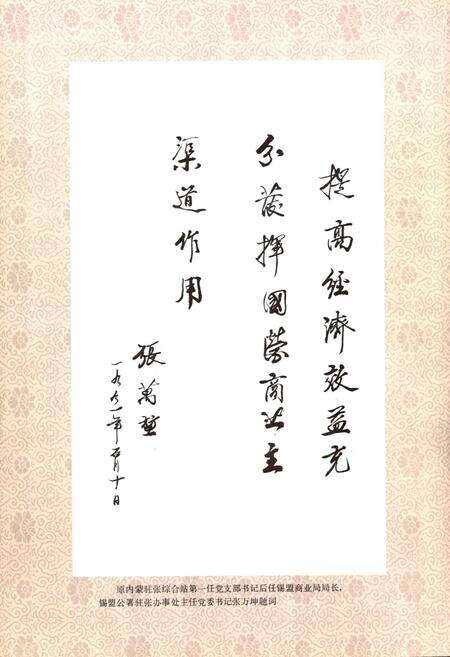 提高經濟效益充
分發揮國營商业主
渠道作用
張萬堃
一九九一年五月十日
原内蒙驻张综合站第一任党支部书记后任锡盟商业局局长,
锡盟公署驻张办事处主任党委书记张万坤题词